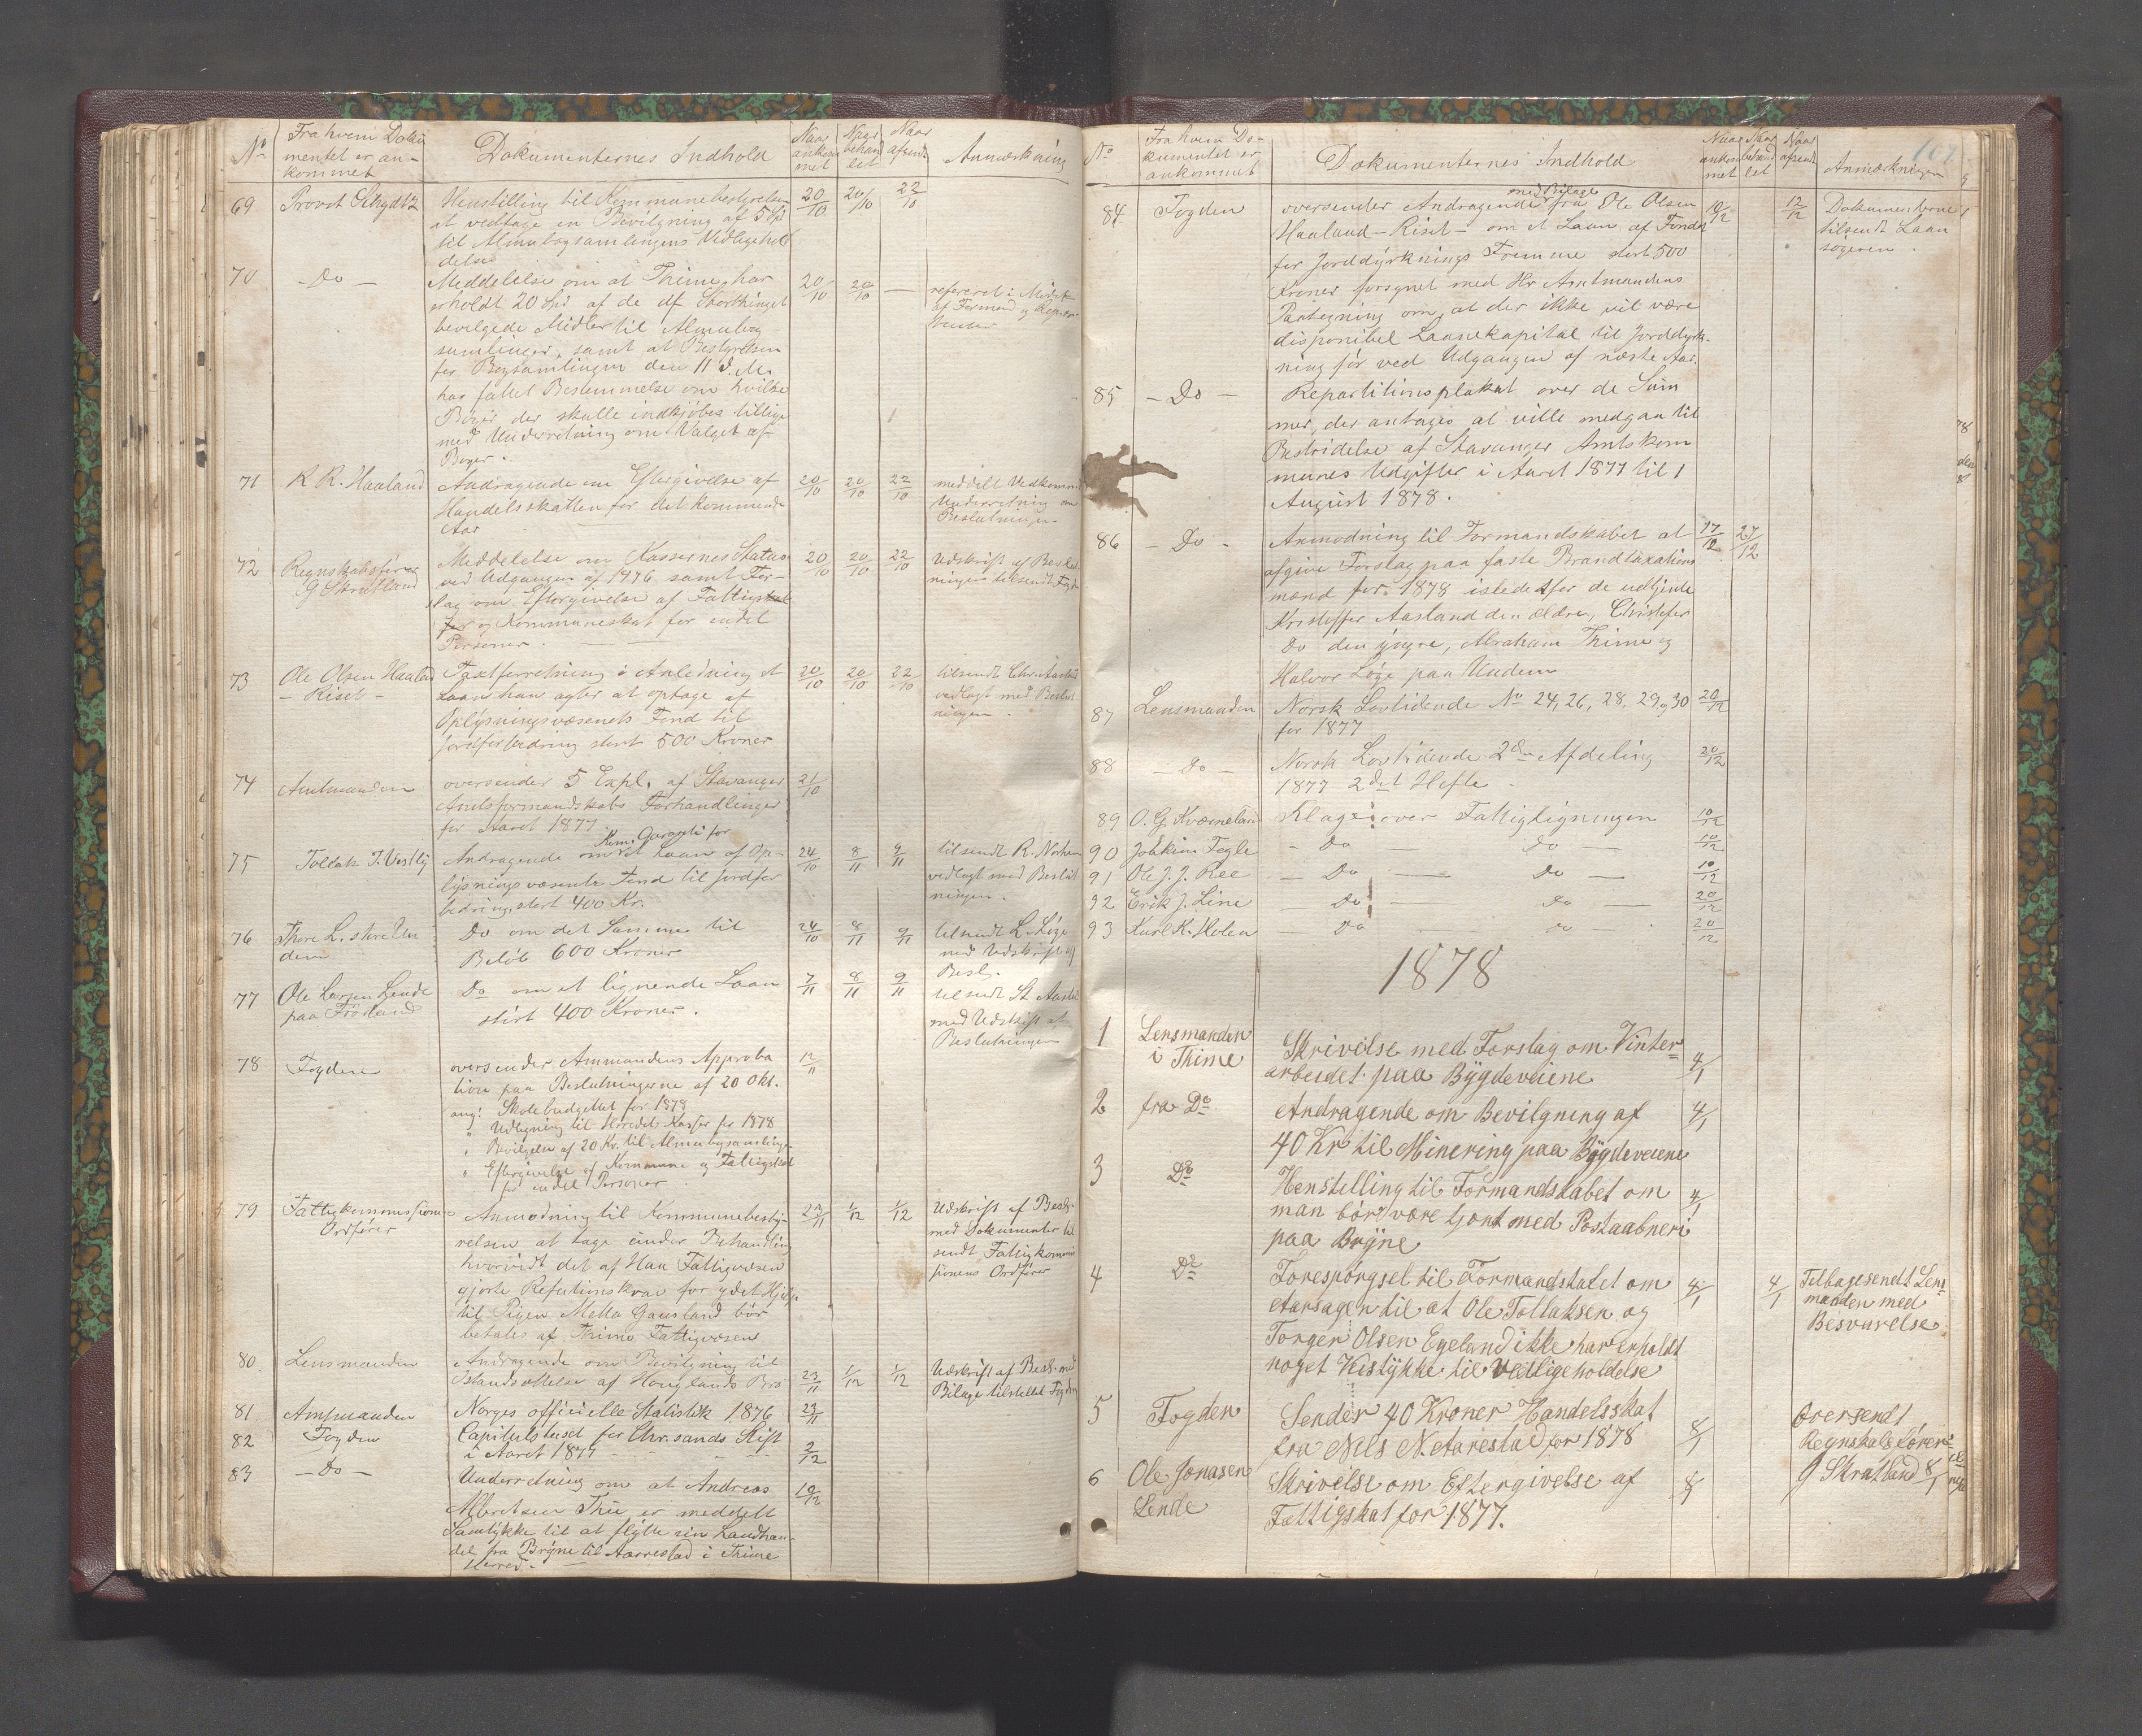 No Fra hvem Doku Dokumenternes Indhold Naar Naar Naar Anmærkning
mentet er an- ankom behan afsendt
kommet met let
69 Provst Schydtz Henstilling til Kommunebestyrelsen 20/10 20/10 22/10
at vedtage en Bevilgning af 5 Spd
til Almubogsamlingens Vedligehol
delse
70 - Do - Meddelelse om at Thime har 20/10 20/10 - refereret i Mødet
erholdt 20 Spd af de af Storthinget af Formænd og Repræsen
bevilgede Midler til Almubog
samlinger, samt at Bestyrelsen
for Bogsamlingen den 11 d. M.
har fattet Bestemmelse om hvilke
Bøger der skulle indkjøbes tillige
med Underretning om Valget af
Bøger.
71 R R. Haaland Andragende om Eftergivelse af 20/10 20/10 22/10 meddelt Vedkommende
Handelsskatten for det kommende Underretning om
Aar Beslutningen
72 Regnskabsfører Meddelelse om Kassernes Status 20/10 20/10 22/10 Udskrift af Beslut
G Skratland ved Udgangen af 1876 samt For- ningen tilsendt Fogden
slag om Eftergivelse af Fattigskat
for og Kommuneskat for endel
Personer.
73 Ole Olsen Haaland Taxtforretning i Anledning et 20/10 20/10 22/10 tilsendt Chr. Aasland
- Riset - Laan han agter at optage af vedlagt med Beslut
Oplysningsvæsenets Fond til ningen.
jordforbedring stort 500 Kroner
74 Amtmanden oversender 5 Expl. af Stavanger 21/10
Amtsformandskabs Forhandlinger
for Aaret 1877
Kom. Garanti for
75 Tollak T. Vestly Andragende om et Laan af Op- 24/10 8/11 9/11 tilsendt R. Norhein
lysningsvæsenets Fond til jordfor vedlagt med Beslut
bedring, stort 400 Kr. ningen.
76 Thore L. store Un Do om det Samme til 24/10 8/11 9/11 tilsendt L. Løge
dem Beløb 600 Kroner med Udskrift af
Besl.
77 Ole Larsen Lende Do om et lignende Laan 7/11 8/11 9/11 tilsendt St Aasland
paa Frøiland stort 400 Kroner. med Udskrift af
Beslutningen
78 Fogden oversender Amtmandens Approba 12/11
tion paa Beslutningerne af 20 Okt.
ang: Skolebudgettet for 1878
" Udligning til Herredets Kasser for 1878
" Bevilgelse af 20 Kr. til Almubogsamlingen
" Eftergivelse af Kommune og Fattigskat
for endel Personer.
79 Fattigkommissionens Anmodning til Kommunebesty- 23/11 1/12 1/12 Udskrift af Besl.
Ordfører relsen at tage under Behandling med Dokumenter til
hvorvidt det af Haa Fattigvæsen sendt Fattigkommis
gjorte Refusionskrav for ydet Hjælp sionens Ordfører
til Pigen Metta Gausland bør
betales af Thime Fattigvæsen
80 Lensmanden Andragende om Bevilgning til 23/11 1/12 1/12 Udskrift af Besl. med
Istandsættelse af Hauglands Bro Bilage tilstillet Fogden
81 Amtmanden Norges officielle Statistik 1876 23/11
82 Fogden Capitulstaxt for Chr.sands Stift 3/12
i Aaret 1877
83 - Do - Underretning om at Andreas 10/12
Albretsen Thu er meddelt
Samtykke til at flytte sin Landhan-
del fra Bryne til Aarrestad i Thime
Herred.
107
No Fra hvem Do- Dokumenternes Indhold Naar Naar Naar Anmærkningen
kumentet er ankom behand afsendt
ankommet met let
med Bilage
84 Fogden oversender Andragende fra Ole Olsen 10/12 12/12 Dokumenterne
Haaland - Riset - om et Laan af Fondet tilsendt Laan
for Jorddyrkningens Fremme stort 500 søgeren.
Kroner forsynet med Hr Amtmandens
Paategning om, at der ikke vil være
disponibel Laanekapital til Jorddyrk-
ning før ved Udgangen af næste Aar.
85 - Do - Repartitionsplakat over de Sum
mer, der antages at ville medgaa til
Bestridelse af Stavanger Amtskom
munes Udgifter i Aaret 1877 til 1
August 1878.
86 - Do - Anmodning til Formandskabet at 17/12 27/12
afgive Forslag paa faste Brandtaxations
mænd for 1878 istedetfor de udtjente
Kristoffer Aasland den ældre, Christofer
Do den yngre, Abraham Thime og
Halvor Løge paa Undem
87 Lensmanden Norsk Lovtidende No 24, 26, 28, 29 og 30 20/12
for 1877
88 - Do - Norsk Lovtidende 2den Afdeling 20/12
1877 2det Hefte.
89 O. G Kværneland Klage over Fattigligningen 10/12
90 Johkim Fegle - Do - Do - 10/12
91 Ole J. J. Ree - Do - Do - 10/12
92 Erik J. Line - Do - Do - 20/12
93 Karl K. Holen - Do - Do - 20/12
1878
1 Lensmanden Skrivelse med Forslag om Vinter= 4/1
i Thime arbeidet paa Bÿgdeveiene
2 fra Do Andragende om Bevilgning af 4/1
40 Kr til Minering paa Bÿgdeveiene
3 Do Henstilling til Formandskabet om 4/1
man bør være tjent med Postaabneri
paa Brÿne
4 Do Forespørgsel til Formandskabet om 4/1 4/1 Tilbagesendt Lens
Aarsagen til at Ole Tollaksen og manden med
Torger Olsen Egeland ikke har erholdt Besvarelse
noget Veistÿkke til Vedligeholdelse
5 Fogden Sender 40 Kroner Handelsskat 8/1 Oversendt
fra Nils N. Aarestad for 1878 Regnskabsfører
G Skratland 8/1
6 Ole Jonasen Skrivelse om Eftergivelse af 8/1
Lende Fattigskat for 1877.